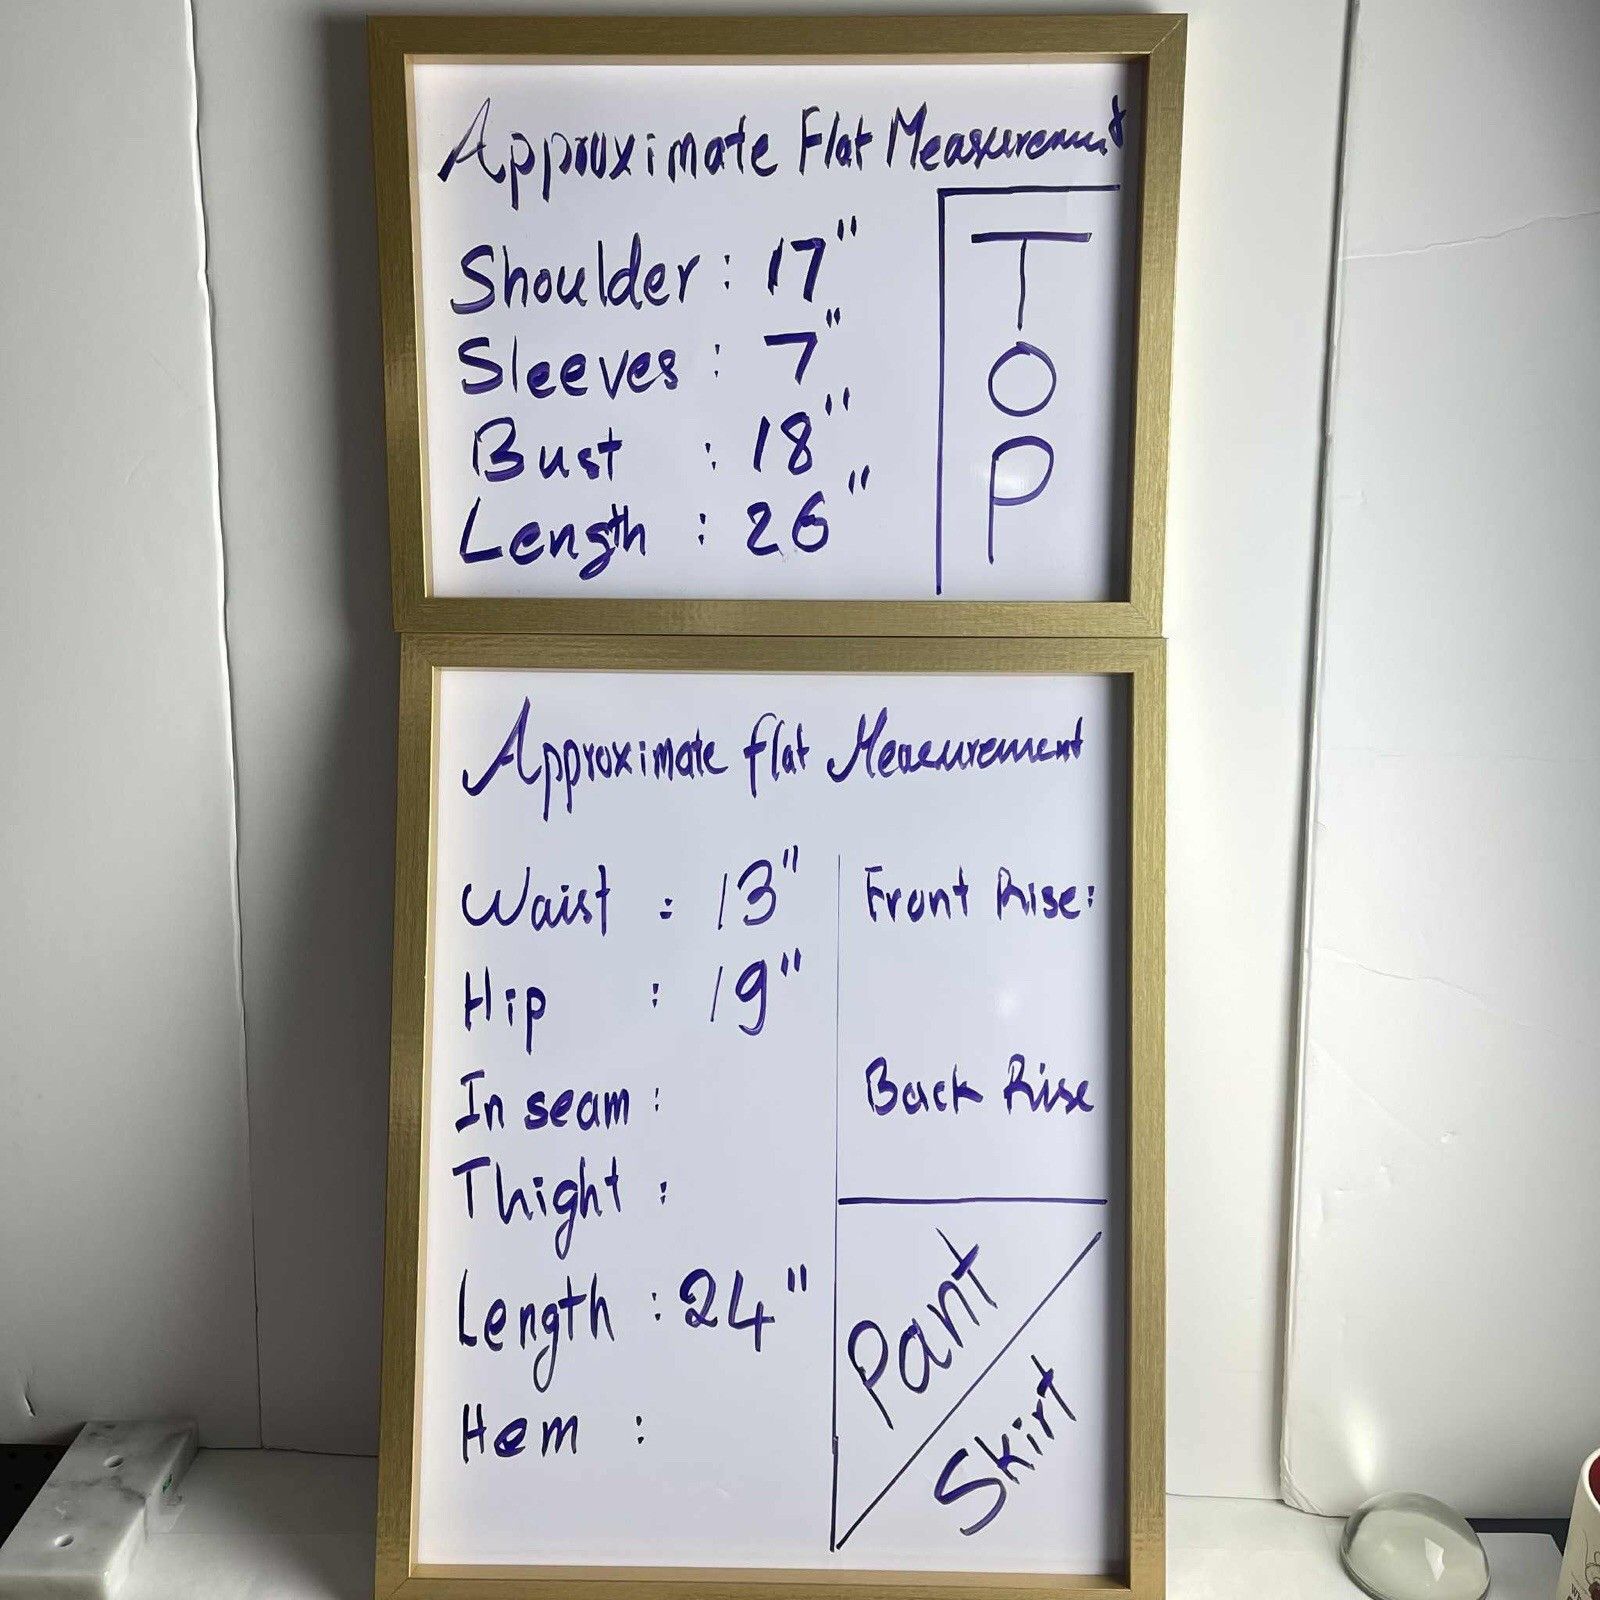 Approximate Flat Measurement
Shoulder : 17"
Sleeves : 7"
Bust : 18"
Length : 26"
TOP
Approximate flat Measurement
Waist : 13"
Hip : 19"
In seam :
Thight :
Length : 24"
Hem :
Front Rise:
Back Rise
Pant
Skirt